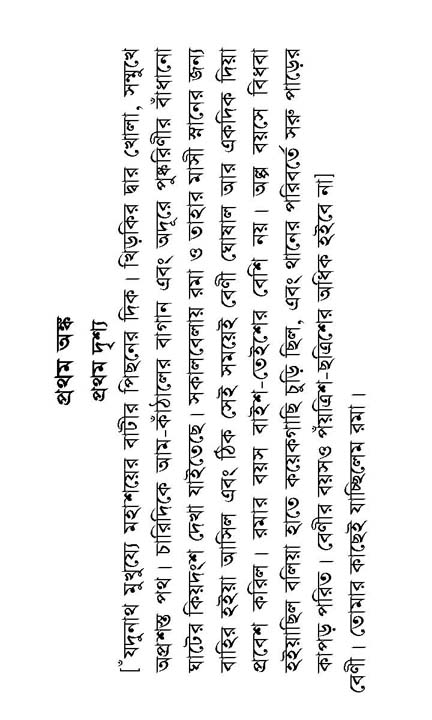 প্রথম অঙ্ক
প্রথম দৃশ্য
[ যদুনাথ মুখুয্যে মহাশয়ের বাটীর পিছনের দিক। খিড়কির দ্বার খোলা, সম্মুখে
অপ্রশস্ত পথ। চারিদিকে আম-কাঁঠালের বাগান এবং অদূরে পুষ্করিণীর বাঁধানো
ঘাটের কিয়দংশ দেখা যাইতেছে। সকালবেলায় রমা ও তাহার মাসী স্নানের জন্য
বাহির হইয়া আসিল এবং ঠিক সেই সময়েই বেণী ঘোষাল আর একদিক দিয়া
প্রবেশ করিল। রমার বয়স বাইশ-তেইশের বেশি নয়। অল্প বয়সে বিধবা
হইয়াছিল বলিয়া হাতে কয়েকগাছি চুড়ি ছিল, এবং থানের পরিবর্তে সরু পাড়ের
কাপড় পরিত। বেণীর বয়সও পঁয়ত্রিশ-ছত্রিশের অধিক হইবে না]
বেণী। তোমার কাছেই যাচ্ছিলেম রমা।